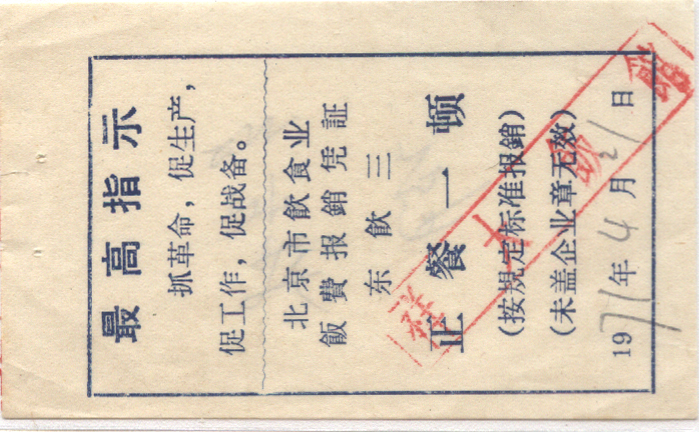 最高指示
抓革命，促生产，
促工作，促战备。
北京市飲食业
飯費报銷凭証
东飲三
正餐一顿
(按规定标准报銷)
(未盖企业章无效)
1971年4月21日